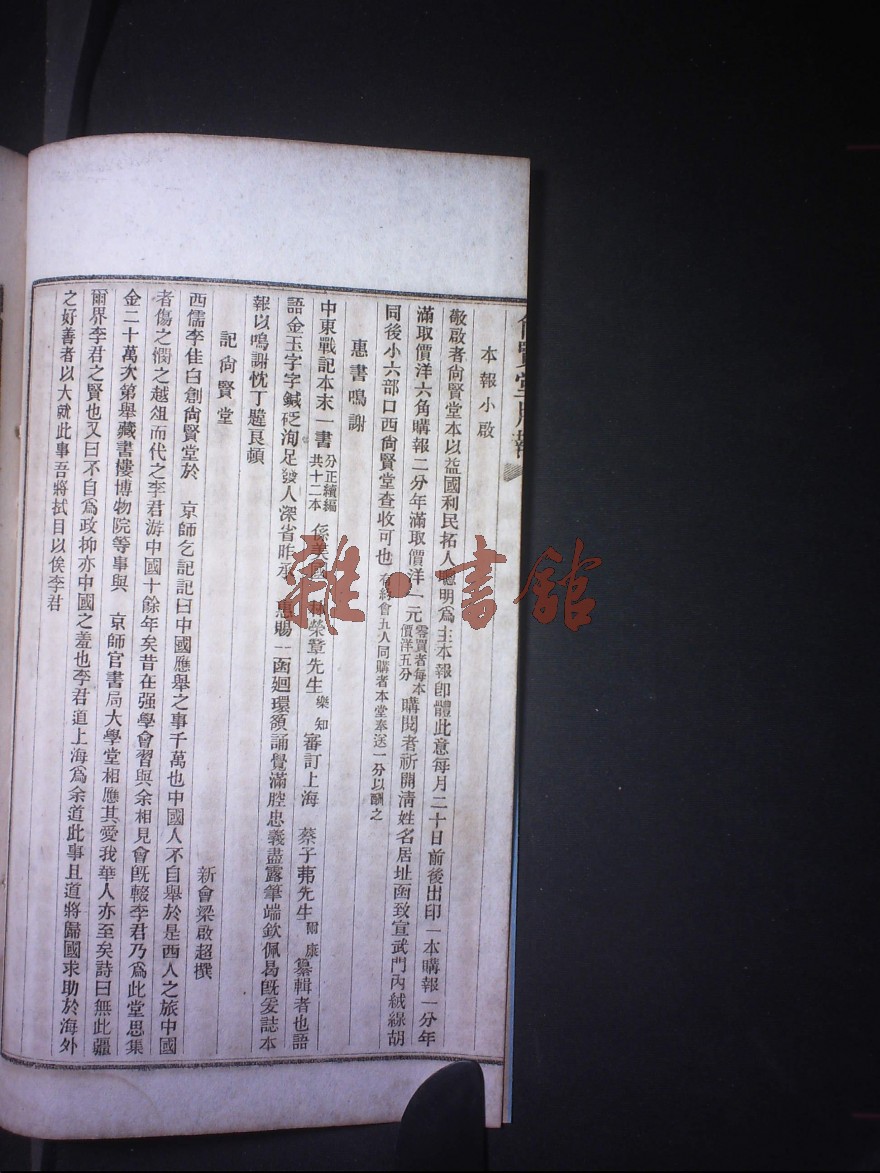 尙賢堂月報
本報小啟
敬啟者尙賢堂本以益國利民拓人聰明爲主本報卽體此意每月二十日前後出印一本購報一分年
滿取價洋六角購報二分年滿取價洋一元零買者每本價洋五分購閱者祈開淸姓名居址函致宣武門內絨綫胡
同後小六部口西尙賢堂查收可也有約會五人同購者本堂奉送一分以酬之
惠書鳴謝
中東戰記本末一書分正續編共十二本係美國林榮章先生樂知審訂上海蔡子茀先生爾康纂輯者也語
語金玉字字鍼砭洵足發人深省昨承惠賜一函廻環頟誦覺滿腔忠義盡露筆端欽佩曷旣爰誌本
報以鳴謝忱丁韙良頓
記尙賢堂
新會梁啟超撰
西儒李佳白創尙賢堂於京師乞記記曰中國應舉之事千萬也中國人不自舉於是西人之旅中國
者傷之憫之越俎而代之李君游中國十餘年矣昔在强學會習與余相見會旣輟李君乃爲此堂思集
金二十萬次第舉藏書樓博物院等事與京師官書局大學堂相應其愛我華人亦至矣詩曰無此疆
爾界李君之賢也又曰不自爲政抑亦中國之羞也李君道上海爲余道此事且道將歸國求助於海外
之好善者以大就此事吾將拭目以俟李君
雜·書館